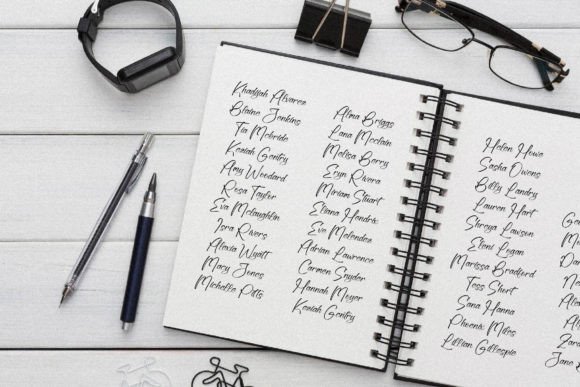 Khadijah Alvarez
Blaine Jenkins
Tia Mcbride
Keziah Gentry
Amy Woodard
Rosa Taylor
Eva Mclaughlin
Isra Rivers
Alexia Wyatt
Macy Jones
Michelle Pitts
Alma Briggs
Lana Mcclain
Melisa Berry
Eryn Rivera
Miriam Stuart
Eliana Hendrix
Eve Melendez
Adrian Lawrence
Carmen Snyder
Hannah Moyer
Keziah Gentry
Helen Howe
Sasha Owens
Billy Landry
Lauren Hart
Shreya Lawson
Eleni Logan
Marissa Bradford
Tess Short
Sana Hanna
Phoenix Miles
Lillian Gillespie